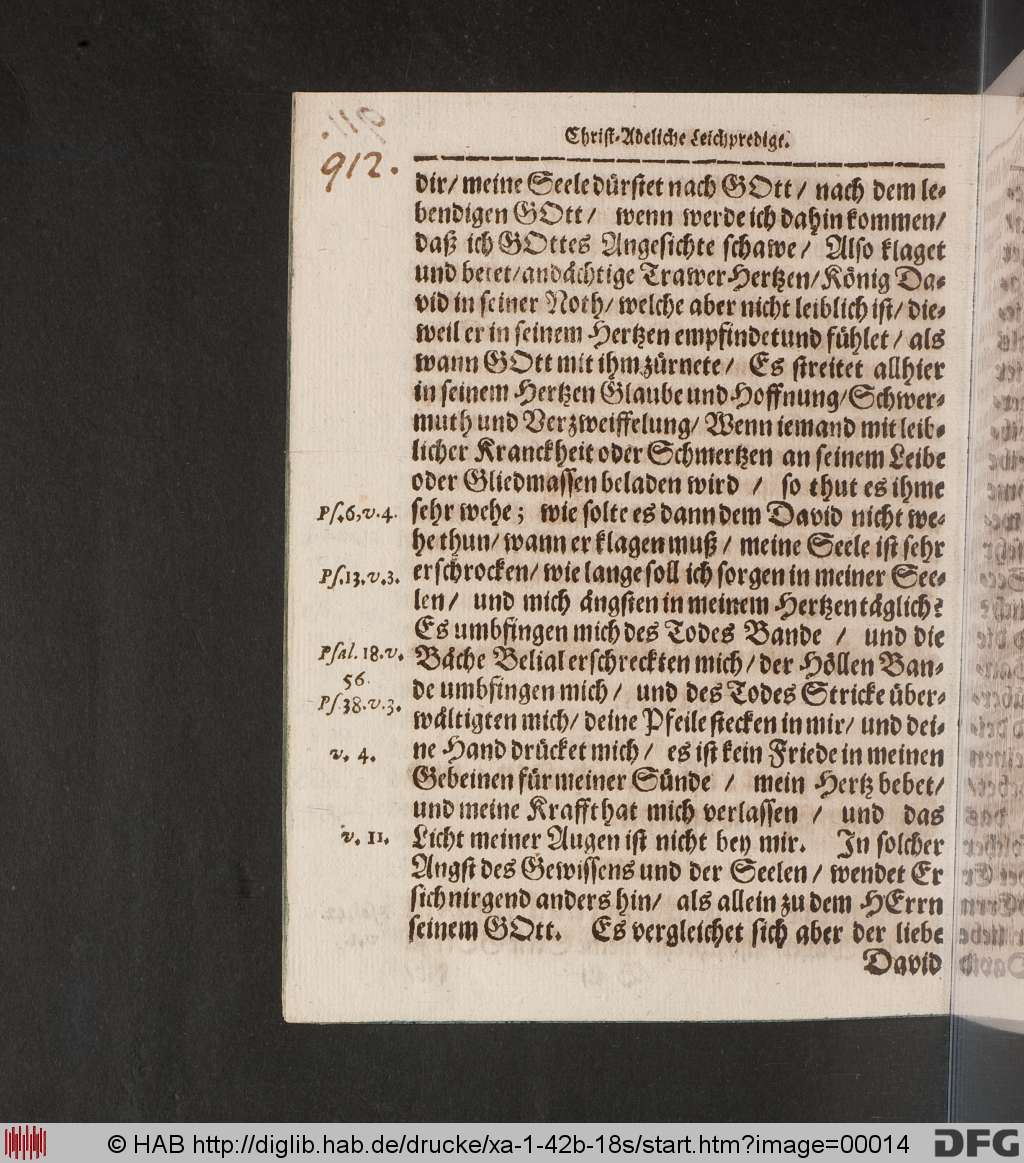 912.
Christ-Adeliche Leichpredigt.
dir/ meine Seele dürstet nach GOtt/ nach dem le-
bendigen GOtt/ wenn werde ich dahin kommen/
daß ich GOttes Angesichte schawe/ Also klaget
und betet/ andächtige Trawer-Hertzen/ König Da-
vid in seiner Noth/ welche aber nicht leiblich ist/ die-
weil er in seinem Hertzen empfindet und fühlet/ als
wann GOtt mit ihm zürnete/ Es streitet allhier
in seinem Hertzen Glaube und Hoffnung/ Schwer-
muth und Verzweiffelung/ Wenn iemand mit leib-
licher Kranckheit oder Schmertzen an seinem Leibe
oder Gliedmassen beladen wird/ so thut es ihme
Ps.6,v.4. sehr wehe; wie solte es dann dem David nicht we-
he thun/ wann er klagen muß/ meine Seele ist sehr
Ps.13.v.3. erschrocken/ wie lange soll ich sorgen in meiner See-
len/ und mich ängsten in meinem Hertzen täglich?
Es umbfingen mich des Todes Bande/ und die
Psal.18.v. Bäche Belial erschreckten mich/ der Höllen Ban-
56. de umbfingen mich/ und des Todes Stricke über-
Ps.38.v.3. wältigten mich/ deine Pfeile stecken in mir/ und dei-
v. 4. ne Hand drücket mich/ es ist kein Friede in meinen
Gebeinen für meiner Sünde/ mein Hertz bebet/
und meine Krafft hat mich verlassen/ und das
v. 11. Licht meiner Augen ist nicht bey mir. In solcher
Angst des Gewissens und der Seelen/ wendet Er
sich nirgend anders hin/ als allein zu dem HErrn
seinem GOtt. Es vergleichet sich aber der liebe
David
© HAB http://diglib.hab.de/drucke/xa-1-42b-18s/start.htm?image=00014
DFG